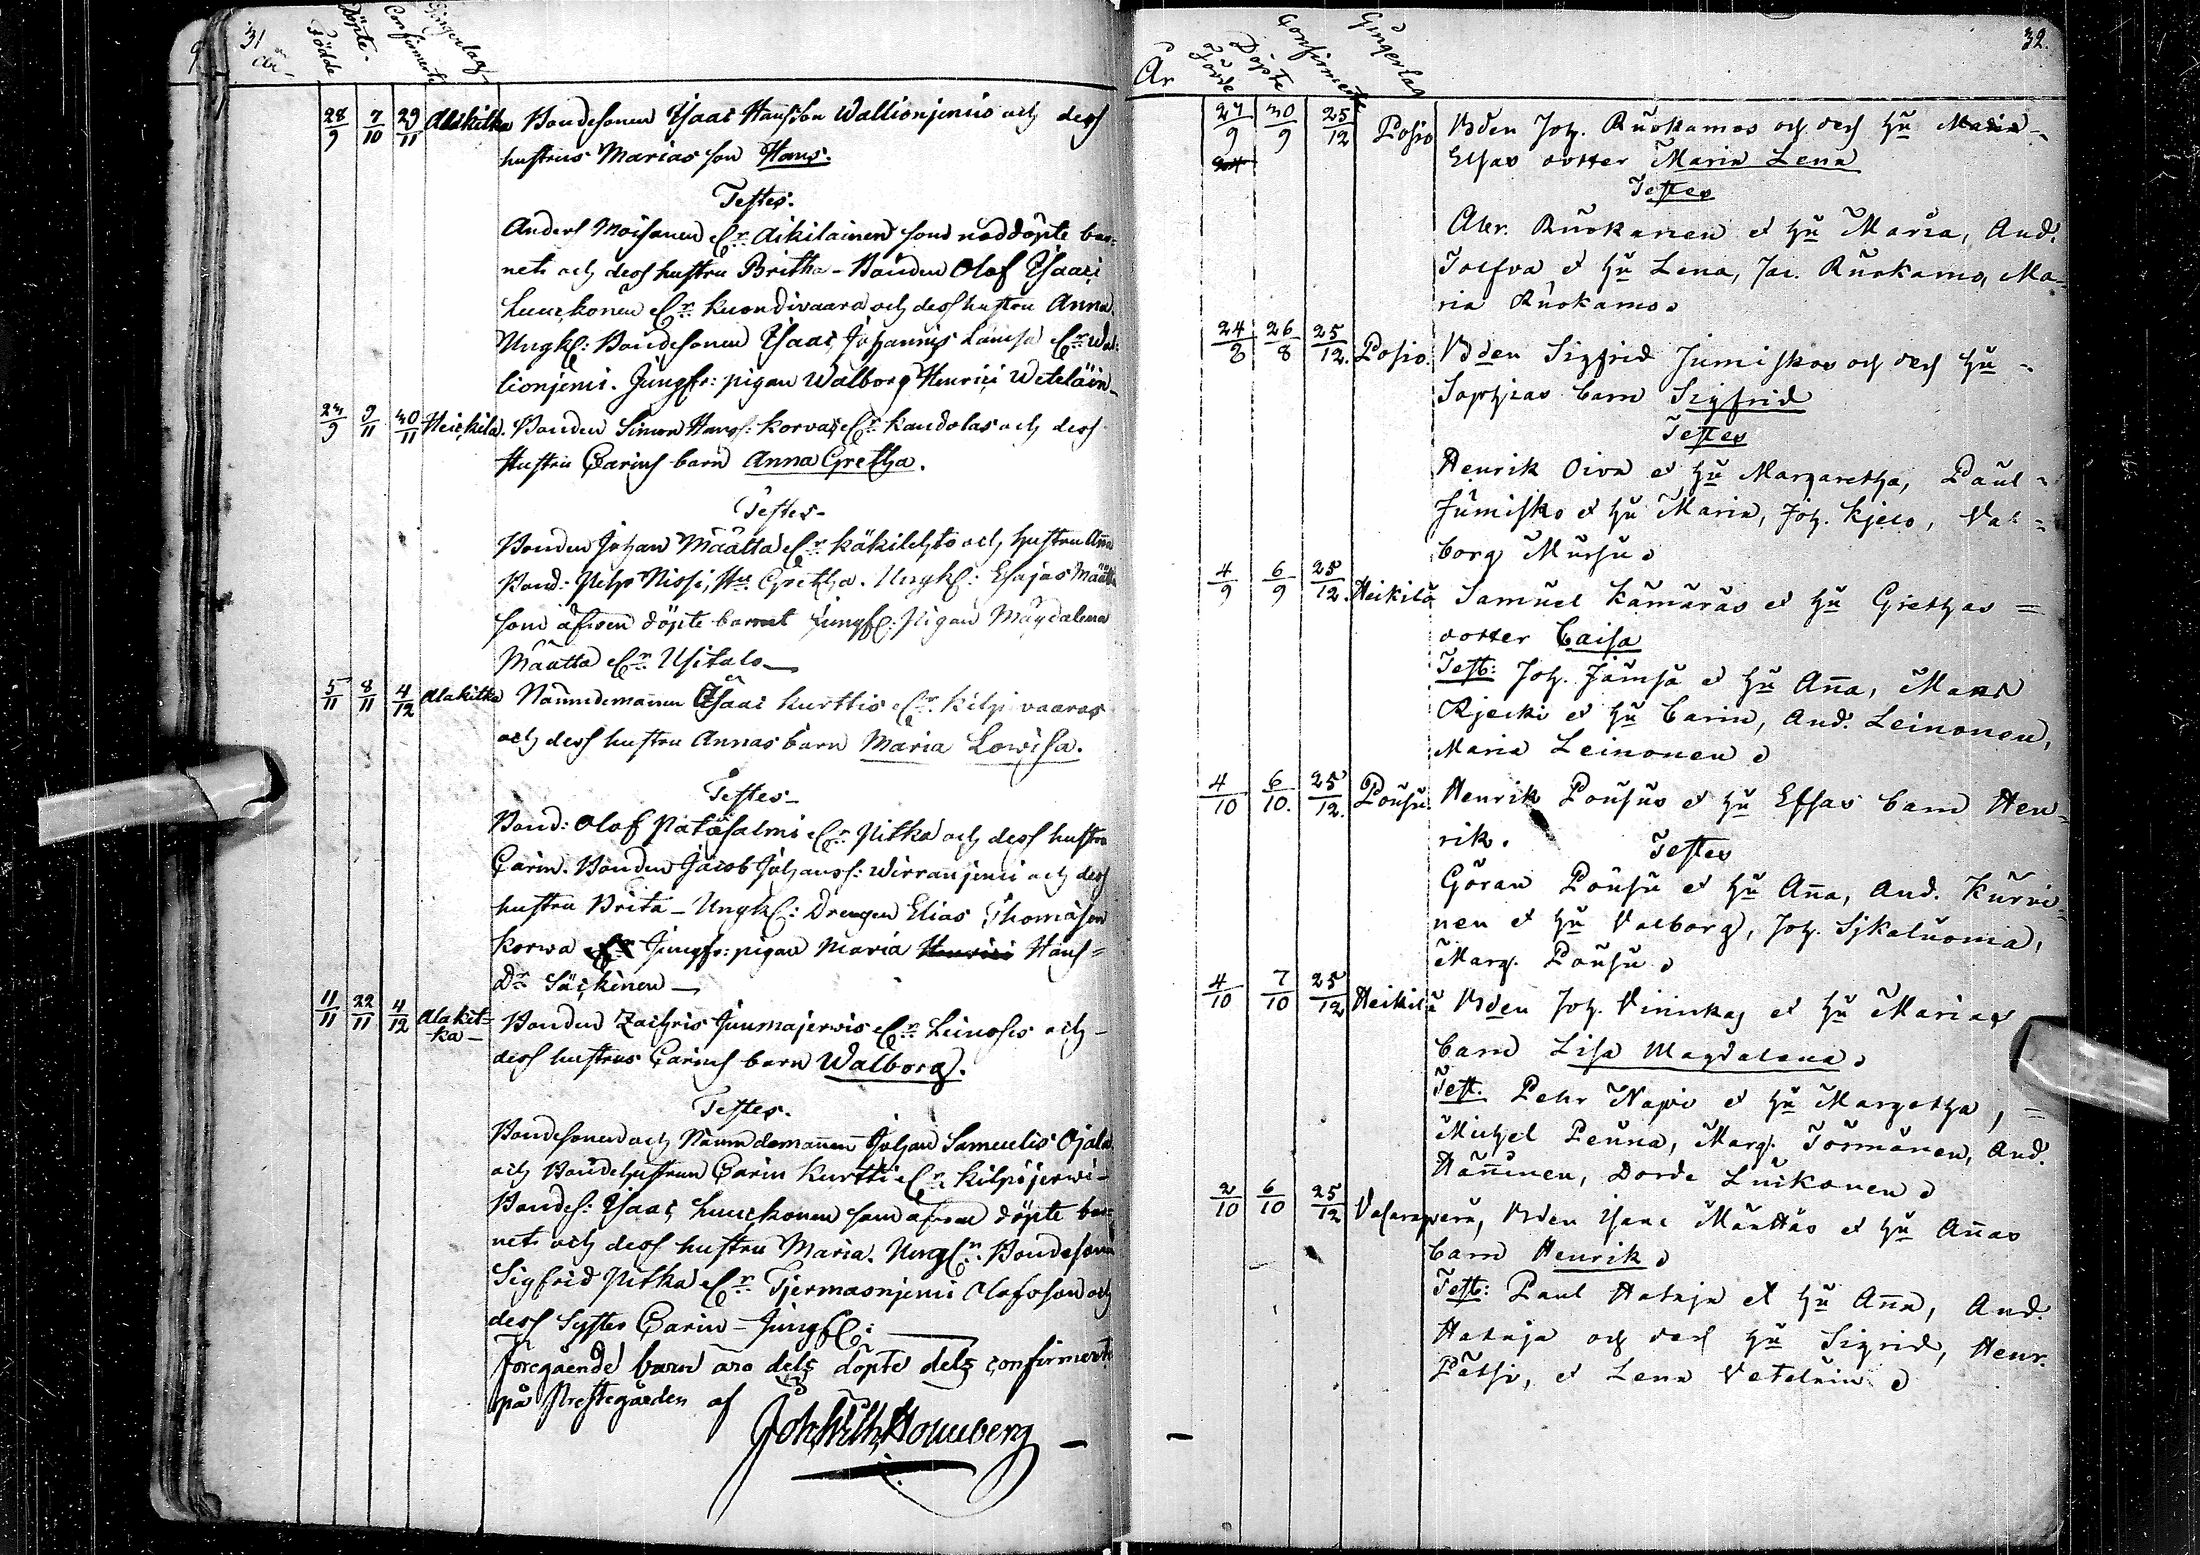 31
År
Födde
Döpte
Confirmerte
Gingerlag
28/9 7/10 29/11 Alakitka Bondesonen Isaac Hansson Wallionjemis och dess
hustrus Marias son Hans.
Testes.
Anders Moisanen fr. Aikilainen som nöddöpte bar-
net och dess hustru Britha - Bonden Olof Isaaci
Luuckonen fr. Kuondivaara och dess hustru Anna.
Ungk: Bondesonen Isaac Johannis Lämsä fr. Wal-
lionjemi. Jungfr: pigan Walborg Henrici Weteläin
23/9 9/11 30/11 Heickilä. Bonden Simon Hanss: Korvas fr. Kandolas och dess
Hustru Carins barn Anna Gretha.
Testes-
Bonden Johan Määtta fr. Käkilehto och hustru Aña
Bond: Pehr Nissi, Hu Gretha. Ungk: Esajas Määtta
som äfwen döpte barnet Jungf: Pigan Magdalena
Määtta fr. Usitalo
5/11 8/11 4/12 Alakitka Nämndemannen Isaac Kurttis fr. Kilpivaaras
och dess hustru Annas barn Maria Lowisa.
Testes-
Bond: Olof Patäsalmi fr. Pitka och dess hustru
Carin. Bonden Jacob Johanss: Wirranjemi och dess
hustru Brita - Ungk: Drengen Elias Thomasson
Korwa Jungfr: pigan Maria Henrici Hans=
Dr Säckinen
11/11 22/11 4/12 Alakit=
ka-
Bonden Zachris Juumajerwis fr. Leinoses och
dess hustrus Carins barn Walborg.
Testes.
Bondesonen och Nämndemannen Johan Samuelis Ojala
och Bondehustrun Carin Kurtti fr. Kilpijerwi-
Bondes: Isaac Luuckonen som äfwen döpte bar-
net och dess hustru Maria. Ungk. Bondesonen
Sigfrid Pitka fr. Tjermasnjemi Olofsson och
dess Syster Carin - Jungf:
Föregående barn äro dels döpte dels confirmerte
på Prestegården af
Joh. Wilh. Homberg
32.
År
Födde
Döpte
Confirmerte
Gingerlag
27/9 30/9 25/12 Posio Bden Joh. Ruokamos och dess Hu Maria
Elsas dotter Maria Lena
Testes
Abr. Ruokanen et Hu Maria, And.
Tolfva et Hu Lena, Jac. Ruokamo, Ma-
ria Ruokamo.
24/8 26/8 25/12. Posio. Bden Sigfrid Jumiskos och dess Hu
Sophias barn Sigfrid
Testes
Henrik Oiva et Hu Margaretha, Paul
Jumisko et Hu Maria, Joh. Kjelo, Val=
borg Mursu.
4/9 6/9 25/12. Heikilä Samuel Kämäräs et Hu Grethas =
dotter Caisa
Test: Joh. Jämsä et Hu Aña, Mats
Rjecki et Hu Carin, And. Leinonen,
Maria Leinonen.
4/10 6/10. 25/12. Pousu. Henrik Pousus et Hu Elsas barn Hen=
rik. Testes
Göran Pousu et Hu Aña, And. Kurvi-
nen et Hu Valborg, Joh. Sjkaluoma,
Marg. Pousu.
4/10 7/10 25/12 Heikilä Bden Joh. Virickas et Hu Marias
barn Lisa Magdalena.
Test. Pehr Napi et Hu Margetha, =
Michel Peuna, Marg. Törmänen, And.
Häñinen, Dorde Luikonen.
2/10 6/10 25/12 Vasaraperä, Bden Isaac Määttäs et Hu Añas
barn Henrik.
Test: Paul Hataja et Hu Aña, And.
Hataja och dess Hu Sigrid, Henr.
Pätsi, et Lena Vetelain.